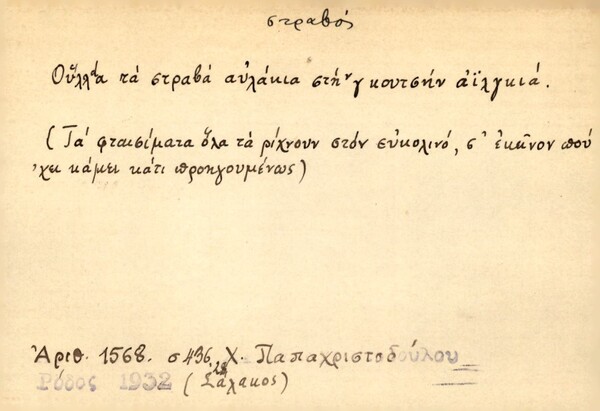 στραβός
Οὕλλα τὰ στραβά αὐλάκια στὴν γκουτσὴν ἀϊλγκιά.
(Τά φταισίματα ὅλα τὰ ρίχνουν στόν εὐκολινό, σ' ἐκεῖνον πού
'χει κάμει κάτι προηγουμένως)
Ἀριθ. 1568. σ 436 Χ. Παπαχριστοδούλου
Ρόδος 1932 (Σάλακος)